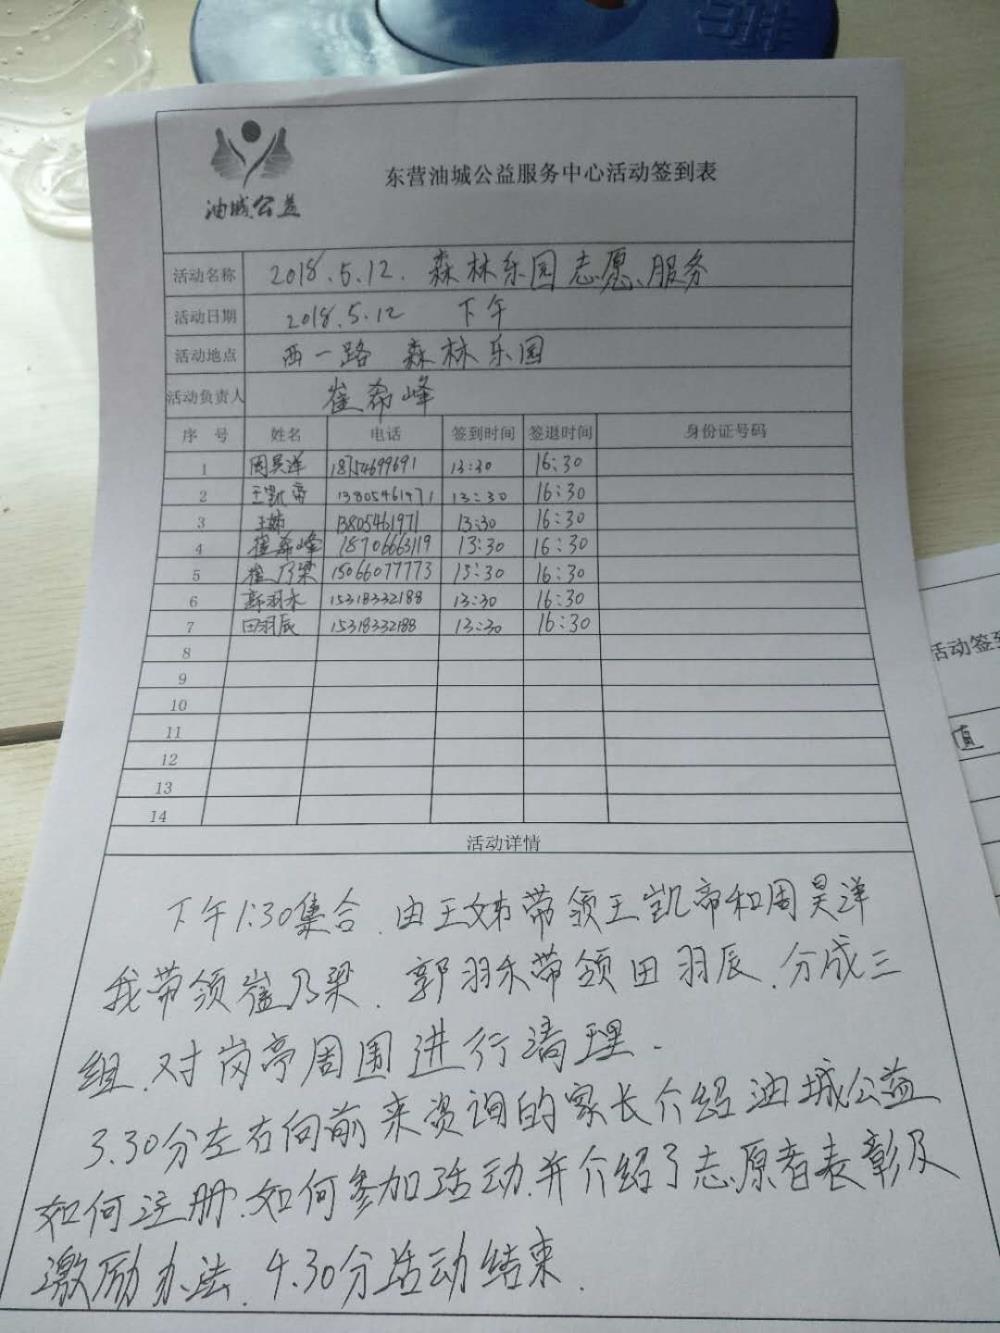 油城公益
东营油城公益服务中心活动签到表
活动名称 2018.5.12. 森林乐园志愿服务
活动日期 2018.5.12 下午
活动地点 西一路 森林乐园
活动负责人 崔希峰
序号 姓名 电话 签到时间 签退时间 身份证号码
1 周昊洋 18754699691 13:30 16:30
2 王凯帝 13805461971 13:30 16:30
3 王姊 13805461971 13:30 16:30
4 崔希峰 18706663119 13:30 16:30
5 崔乃梁 15066077773 13:30 16:30
6 郭羽禾 15318332188 13:30 16:30
7 田羽辰 15318332188 13:30 16:30
8
9
10
11
12
13
14
活动详情
下午1:30集合.由王姊带领王凯帝和周昊洋
我带领崔乃梁.郭羽禾带领田羽辰.分成三
组.对岗亭周围进行清理.
3.30分左右向前来资询的家长介绍油城公益
如何注册.如何参加活动.并介绍了志原者表彰及
激励办法.4.30分活动结束.
活动签到
值